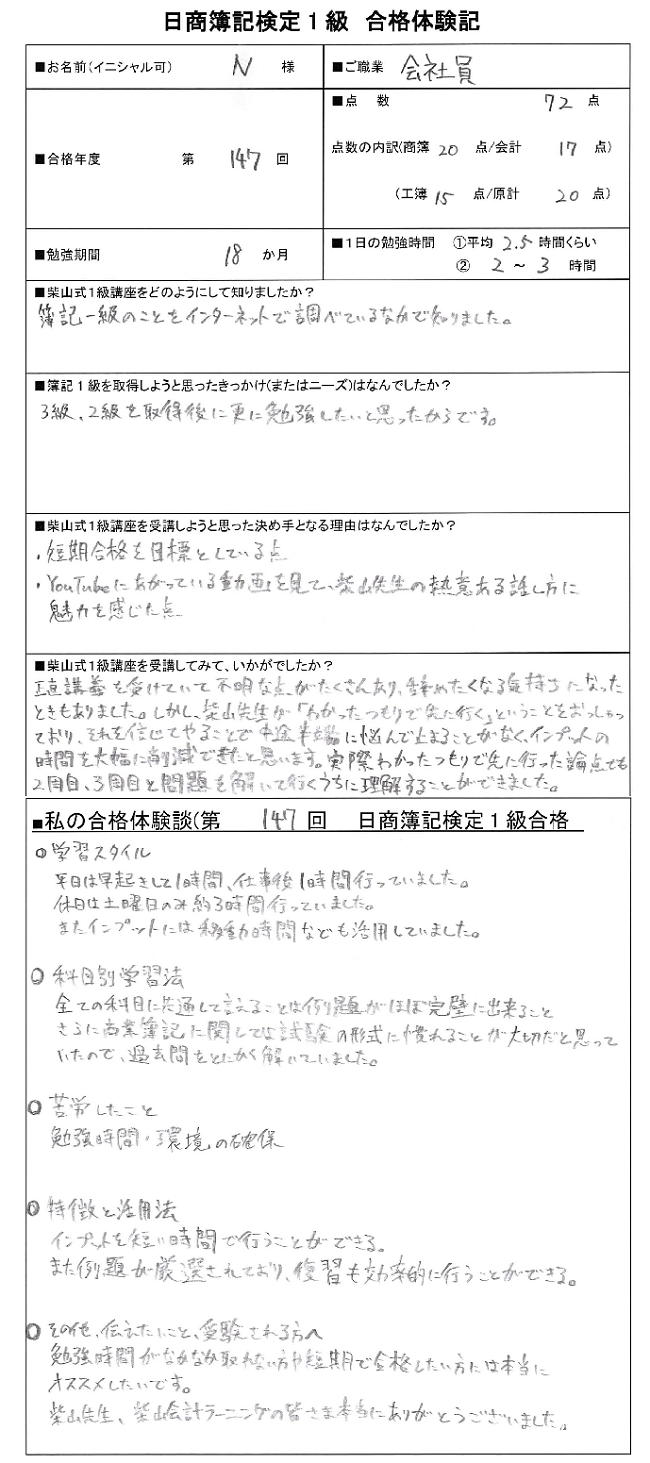 日商簿記検定1級 合格体験記
■お名前(イニシャル可) N 様
■ご職業 会社員
■合格年度 第 147 回
■点 数 72 点
点数の内訳(商簿 20 点/会計 17 点)
(工簿 15 点/原計 20 点)
■勉強期間 18 か月
■1日の勉強時間 ①平均 2.5 時間くらい
② 2 ~ 3 時間
■柴山式1級講座をどのようにして知りましたか?
簿記一級のことをインターネットで調べているなかで知りました。
■簿記1級を取得しようと思ったきっかけ(またはニーズ)はなんでしたか?
3級、2級を取得後に更に勉強したいと思ったからです。
■柴山式1級講座を受講しようと思った決め手となる理由はなんでしたか?
・短期合格を目標としている点
・YouTubeにあがっている動画を見て、柴山先生の熱意ある話し方に
魅力を感じた点
■柴山式1級講座を受講してみて、いかがでしたか?
正直講義を受けていて不明な点がたくさんあり、辞めたくなる気持ちになった
ときもありました。しかし、柴山先生が「わかったつもりで先に行く」ということをおっしゃっ
ており、それを信じてやることで中途半端に悩んで止まることがなく、インプットの
時間を大幅に削減できたと思います。実際わかったつもりで先に行った論点でも
2周目、3周目と問題を解いて行くうちに理解することができました。
■私の合格体験談(第 147 回 日商簿記検定1級合格
○学習スタイル
平日は早起きして1時間、仕事後1時間行っていました。
休日は土曜日のみ約3時間行っていました。
またインプットには移動時間なども活用していました。
○科目別学習法
全ての科目に共通して言えることは例題がほぼ完璧に出来ること
さらに商業簿記に関しては試験の形式に慣れることが大切だと思って
いたので、過去問をとにかく解いていました。
○苦労したこと
勉強時間・環境の確保
○特徴と活用法
インプットを短い時間で行うことができる。
また例題が厳選されており、復習も効率的に行うことができる。
○その他、伝えたいこと、受験される方へ
勉強時間がなかなか取れない方や短期で合格したい方には本当に
オススメしたいです。
柴山先生、柴山会計ラーニングの皆さま本当にありがとうございました。